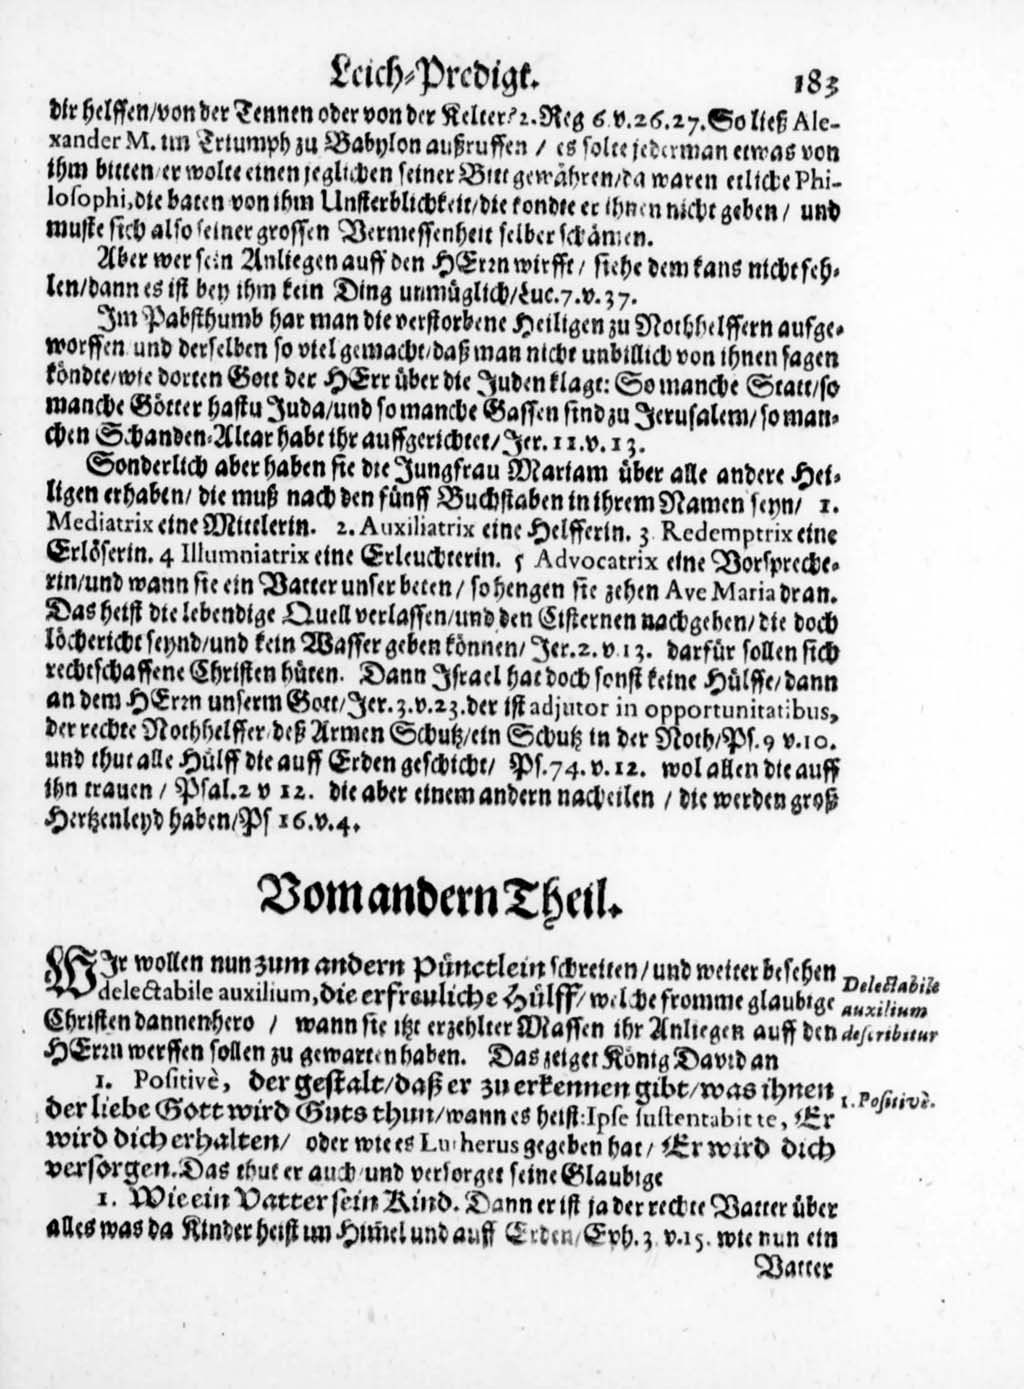 Leich-Predigt. 183
dir helffen/von der Tennen oder von der Kelter? 2. Reg 6. v. 26. 27. So ließ Ale-
xander M. im Triumph zu Babylon außruffen / es solte jederman etwas von
ihm bitten/er wolte einen jeglichen seiner Bitt gewähren/da waren etliche Phi-
losophi, die baten von ihm Unsterblichkeit/die kondte er ihnen nicht geben / und
muste sich also seiner grossen Vermessenheit selber schämen.
Aber wer sein Anliegen auff den HErrn wirfft / siehe dem kans nicht feh-
len/dann es ist bey ihm kein Ding unmüglich/Luc. 7. v. 37.
Im Pabsthumb hat man die verstorbene Heiligen zu Nothhelffern aufge-
worffen und derselben so viel gemacht/daß man nicht unbillich von ihnen sagen
köndte/wie dorten Gott der HErr über die Juden klagt: So manche Statt/so
manche Götter hastu Juda/und so manche Gassen sind zu Jerusalem/so man-
chen Schanden-Altar habt ihr auffgerichtet/Jer. 11. v. 13.
Sonderlich aber haben sie die Jungfrau Mariam über alle andere Hei-
ligen erhaben/ die muß nach den fünff Buchstaben in ihrem Namen seyn/ 1.
Mediatrix eine Mittlerin. 2. Auxiliatrix eine Helfferin. 3 Redemptrix eine
Erlöserin. 4 Illumniatrix eine Erleuchterin. 5 Advocatrix eine Vorspreche-
rin/und wann sie ein Vatter unser beten / so hengen sie zehen Ave Maria dran.
Das heist die lebendige Quell verlassen/und den Cisternen nachgehen/die doch
löchericht seynd/und kein Wasser geben können/ Jer. 2. v 13. darfür sollen sich
rechtschaffene Christen hüten. Dann Israel hat doch sonst keine Hülffe/dann
an dem HErrn unserm Gott/Jer. 3. v. 23. der ist adjutor in opportunitatibus,
der rechte Nothhelffer/deß Armen Schutz/ein Schutz in der Noth/Ps. 9 v. 10.
und thut alle Hülff die auff Erden geschicht/ Ps. 74. v. 12. wol allen die auff
ihn trauen / Psal. 2 v 12. die aber einem andern nacheilen / die werden groß
Hertzenleyd haben/Ps 16. v. 4.
Vom andern Theil.
WIr wollen nun zum andern Pünctlein schreiten/und weiter besehen
delectabile auxilium, die erfreuliche Hülff/welche fromme glaubige
Christen dannenhero / wann sie itzt erzehlter Massen ihr Anliegen auff den
HErrn werffen sollen zu gewarten haben. Das zeiget König David an
Delectabile
auxilium
describitur
1. Positivè, der gestalt/daß er zu erkennen gibt/was ihnen
der liebe Gott wird Guts thun/wann es heist: Ipse sustentabit te, Er
wird dich erhalten/ oder wie es Lutherus gegeben hat/ Er wird dich
versorgen. Das thut er auch/und versorget seine Glaubige
1. Positivè.
1. Wie ein Vatter sein Kind. Dann er ist ja der rechte Vatter über
alles was da Kinder heist im Him̃el und auff Erden/Eph. 3 v. 15. wie nun ein
Vatter